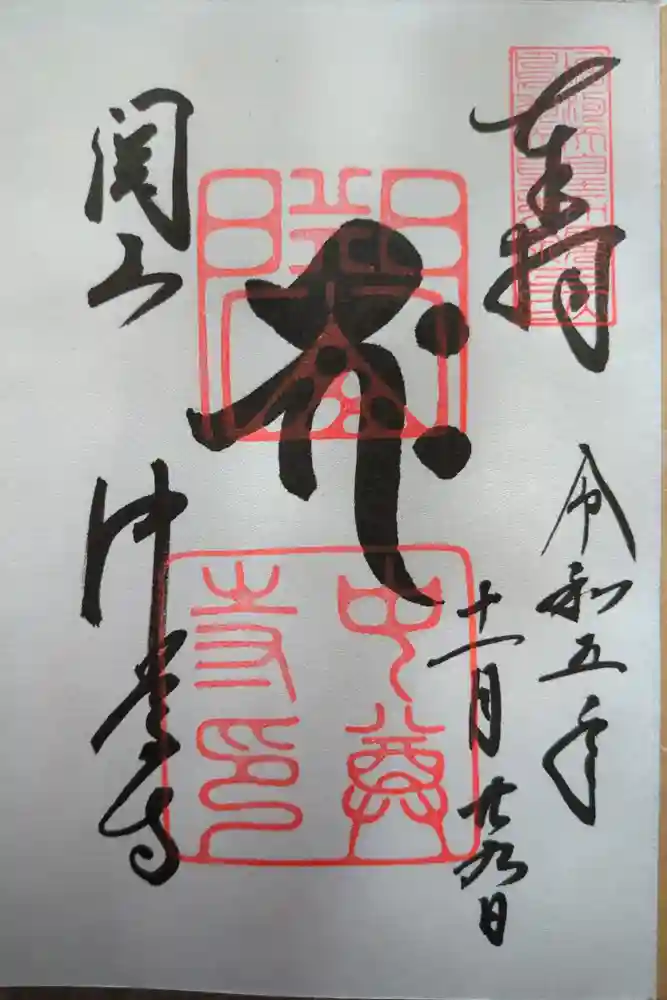 奉拝
令和五年
十一月廿九日
हः
關山
中尊寺
關山
中尊寺印